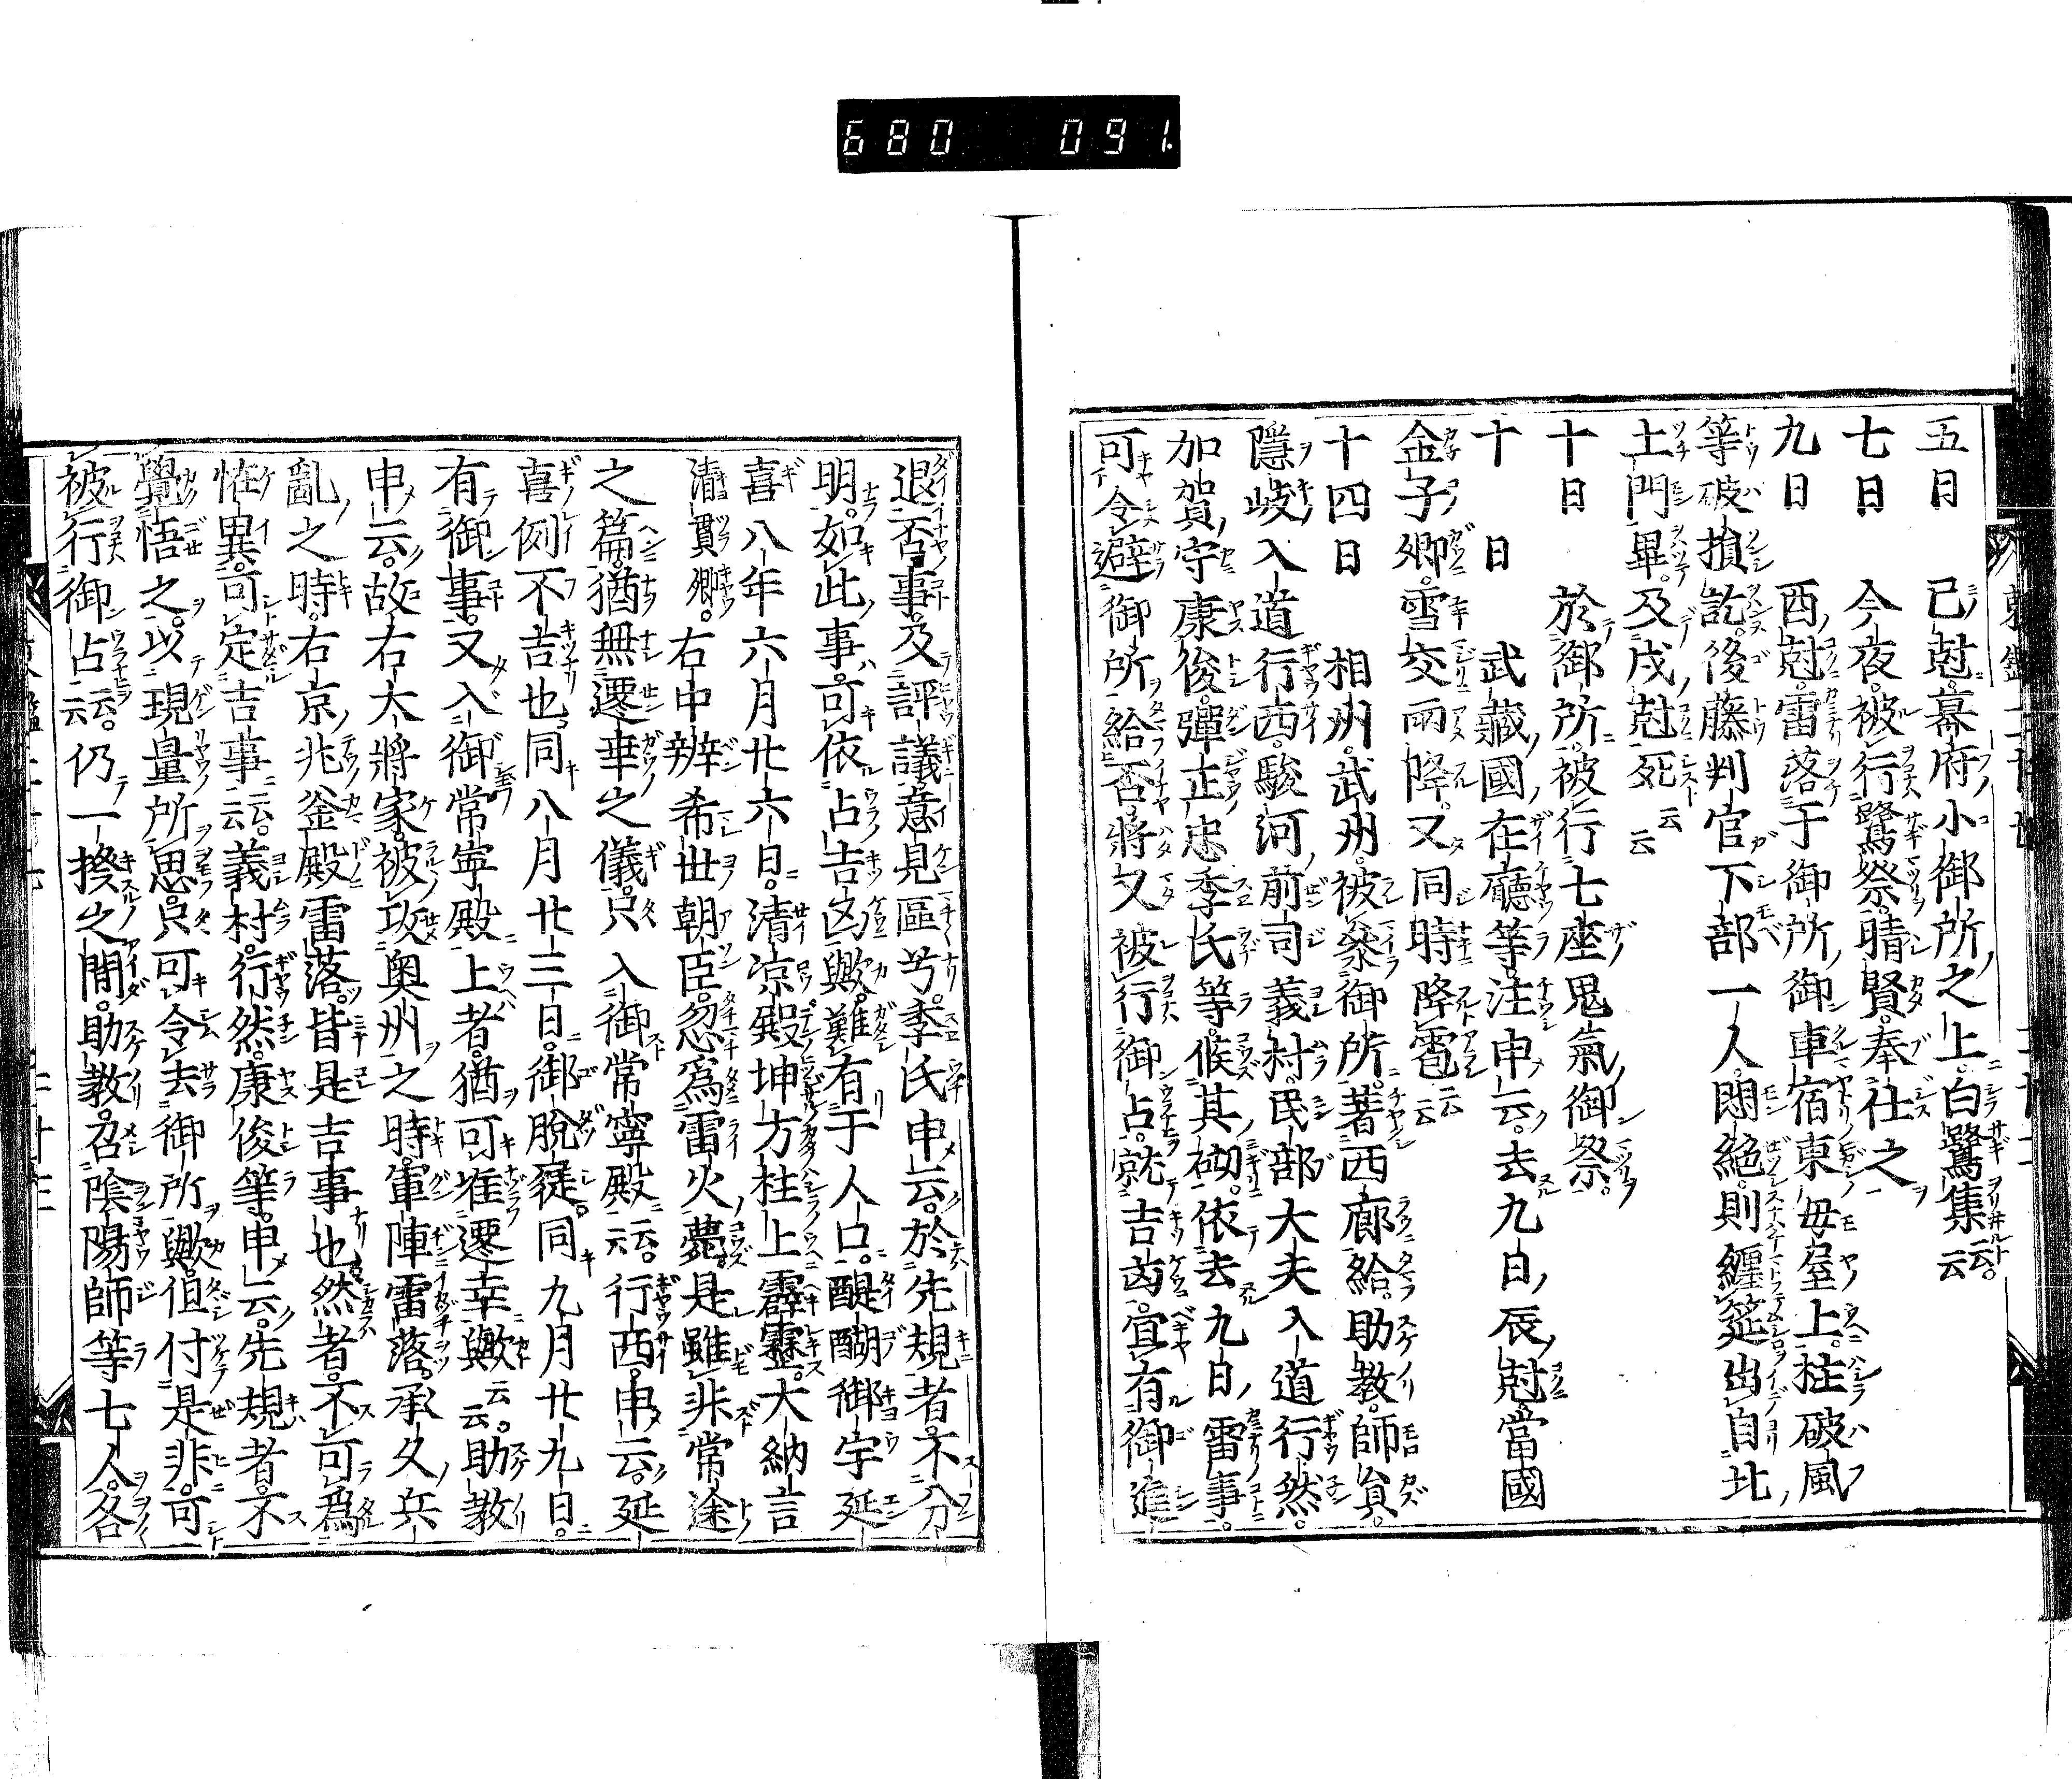 680 091.
五日 己尅。幕府小御所之上。白鷺集云云。
七日 今夜。被行鷺祭。晴賢奉仕之
九日 酉尅。雷落于御所。御車宿東母屋上。柱破風
等破損訖。後藤判官下部一人。悶絶。則纒筵出自北
土門畢。及戌尅死云云
十日 於御所。被行七座鬼氣御祭。
十 日 武藏國在廳等。注申云。去九日辰尅。當國
金子郷。雪交雨降。又同時降雹云云
十四日 相州。武州。被參御所。著西廊給。助教師員。
隱岐入道行西。駿河前司義村。民部大夫入道行然。
加賀守康俊。彈正忠季氏等。候其砌。依去九日雷事。
可令避御所給否。將又被行御占。就吉凶。宜有御進
退否事。及評議意見區兮。季氏申云。於先規者。不分
明。如此事。可依占吉凶歟。難有于人口。醍醐御宇延
喜八年六月廿六日。清凉殿坤方柱上霹靂。大納言
淸貫卿。右中辨希世朝臣。忽爲雷火薨。是雖非常途
之篇。猶無遷幸之儀。只入御常寧殿云云。行西申云。延
喜例不吉也。同八月廿三日。御脫屣。同九月廿九日。
有御事。又入御常寧殿上者。猶可准遷幸歟云云。助教
申云。故右大將家。被攻奧州之時。軍陣雷落。承久兵
亂之時。右京兆釜殿雷落。皆是吉事也。然者。不可爲
怪異。可定吉事云云。義村。行然。康俊等。申云。先規者。不
覺悟之。以現量所思。只可令去御所歟。但付是非。可
被行御占云云。仍一揆之間。助教。召陰陽師等七人。各